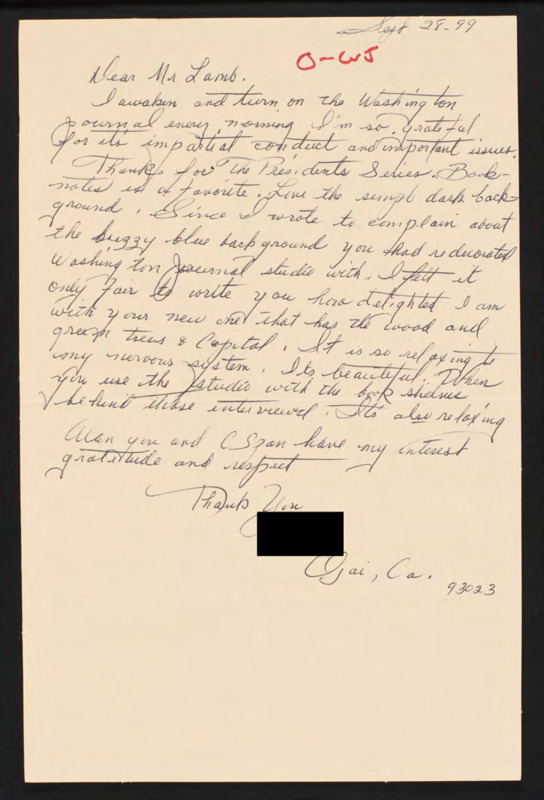 Sept 28-99
O-WJ
Dear Mr Lamb.
I awaken and turn on the Washington
Journal every morning I'm so grateful
for its impartial conduct and important issues.
Thanks for the Presidents Series. Book-
notes is a favorite. Love the simpl dark back-
ground. Since I wrote to complain about
the buzzy blue background you had redecorated
Washington Journal studio with. I felt it
only fair to write you how delighted I am
with your new one that has the wood and
green trees & Capital. It is so relaxing to
my nervous system. Its beautiful. When
you use the studio with the book shelves
behind those interviewd. Its also relaxing
you and CSpan have my interest
gratitude and respect
Thank You
Ojai, Ca.
93023